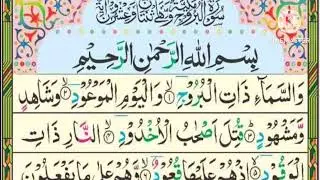 سورة البروج مكية وهي اثنتان وعشرون آية
بِسْمِ اللهِ الرَّحْمٰنِ الرَّحِيْمِ
وَالسَّمَآءِ ذَاتِ الْبُرُوْجِ ۙ‏﴿۱﴾ وَالْيَوْمِ الْمَوْعُوْدِ ۙ‏﴿۲﴾ وَشَاهِدٍ
وَّمَشْهُوْدٍ ؕ‏﴿۳﴾ قُتِلَ اَصْحٰبُ الْاُخْدُوْدِ ۙ‏﴿۴﴾ النَّارِ ذَاتِ
الْوَقُوْدِ ۙ‏﴿۵﴾ اِذْ هُمْ عَلَيْهَا قُعُوْدٌ ۙ‏﴿۶﴾ وَّهُمْ عَلٰى مَا يَفْعَلُوْنَ